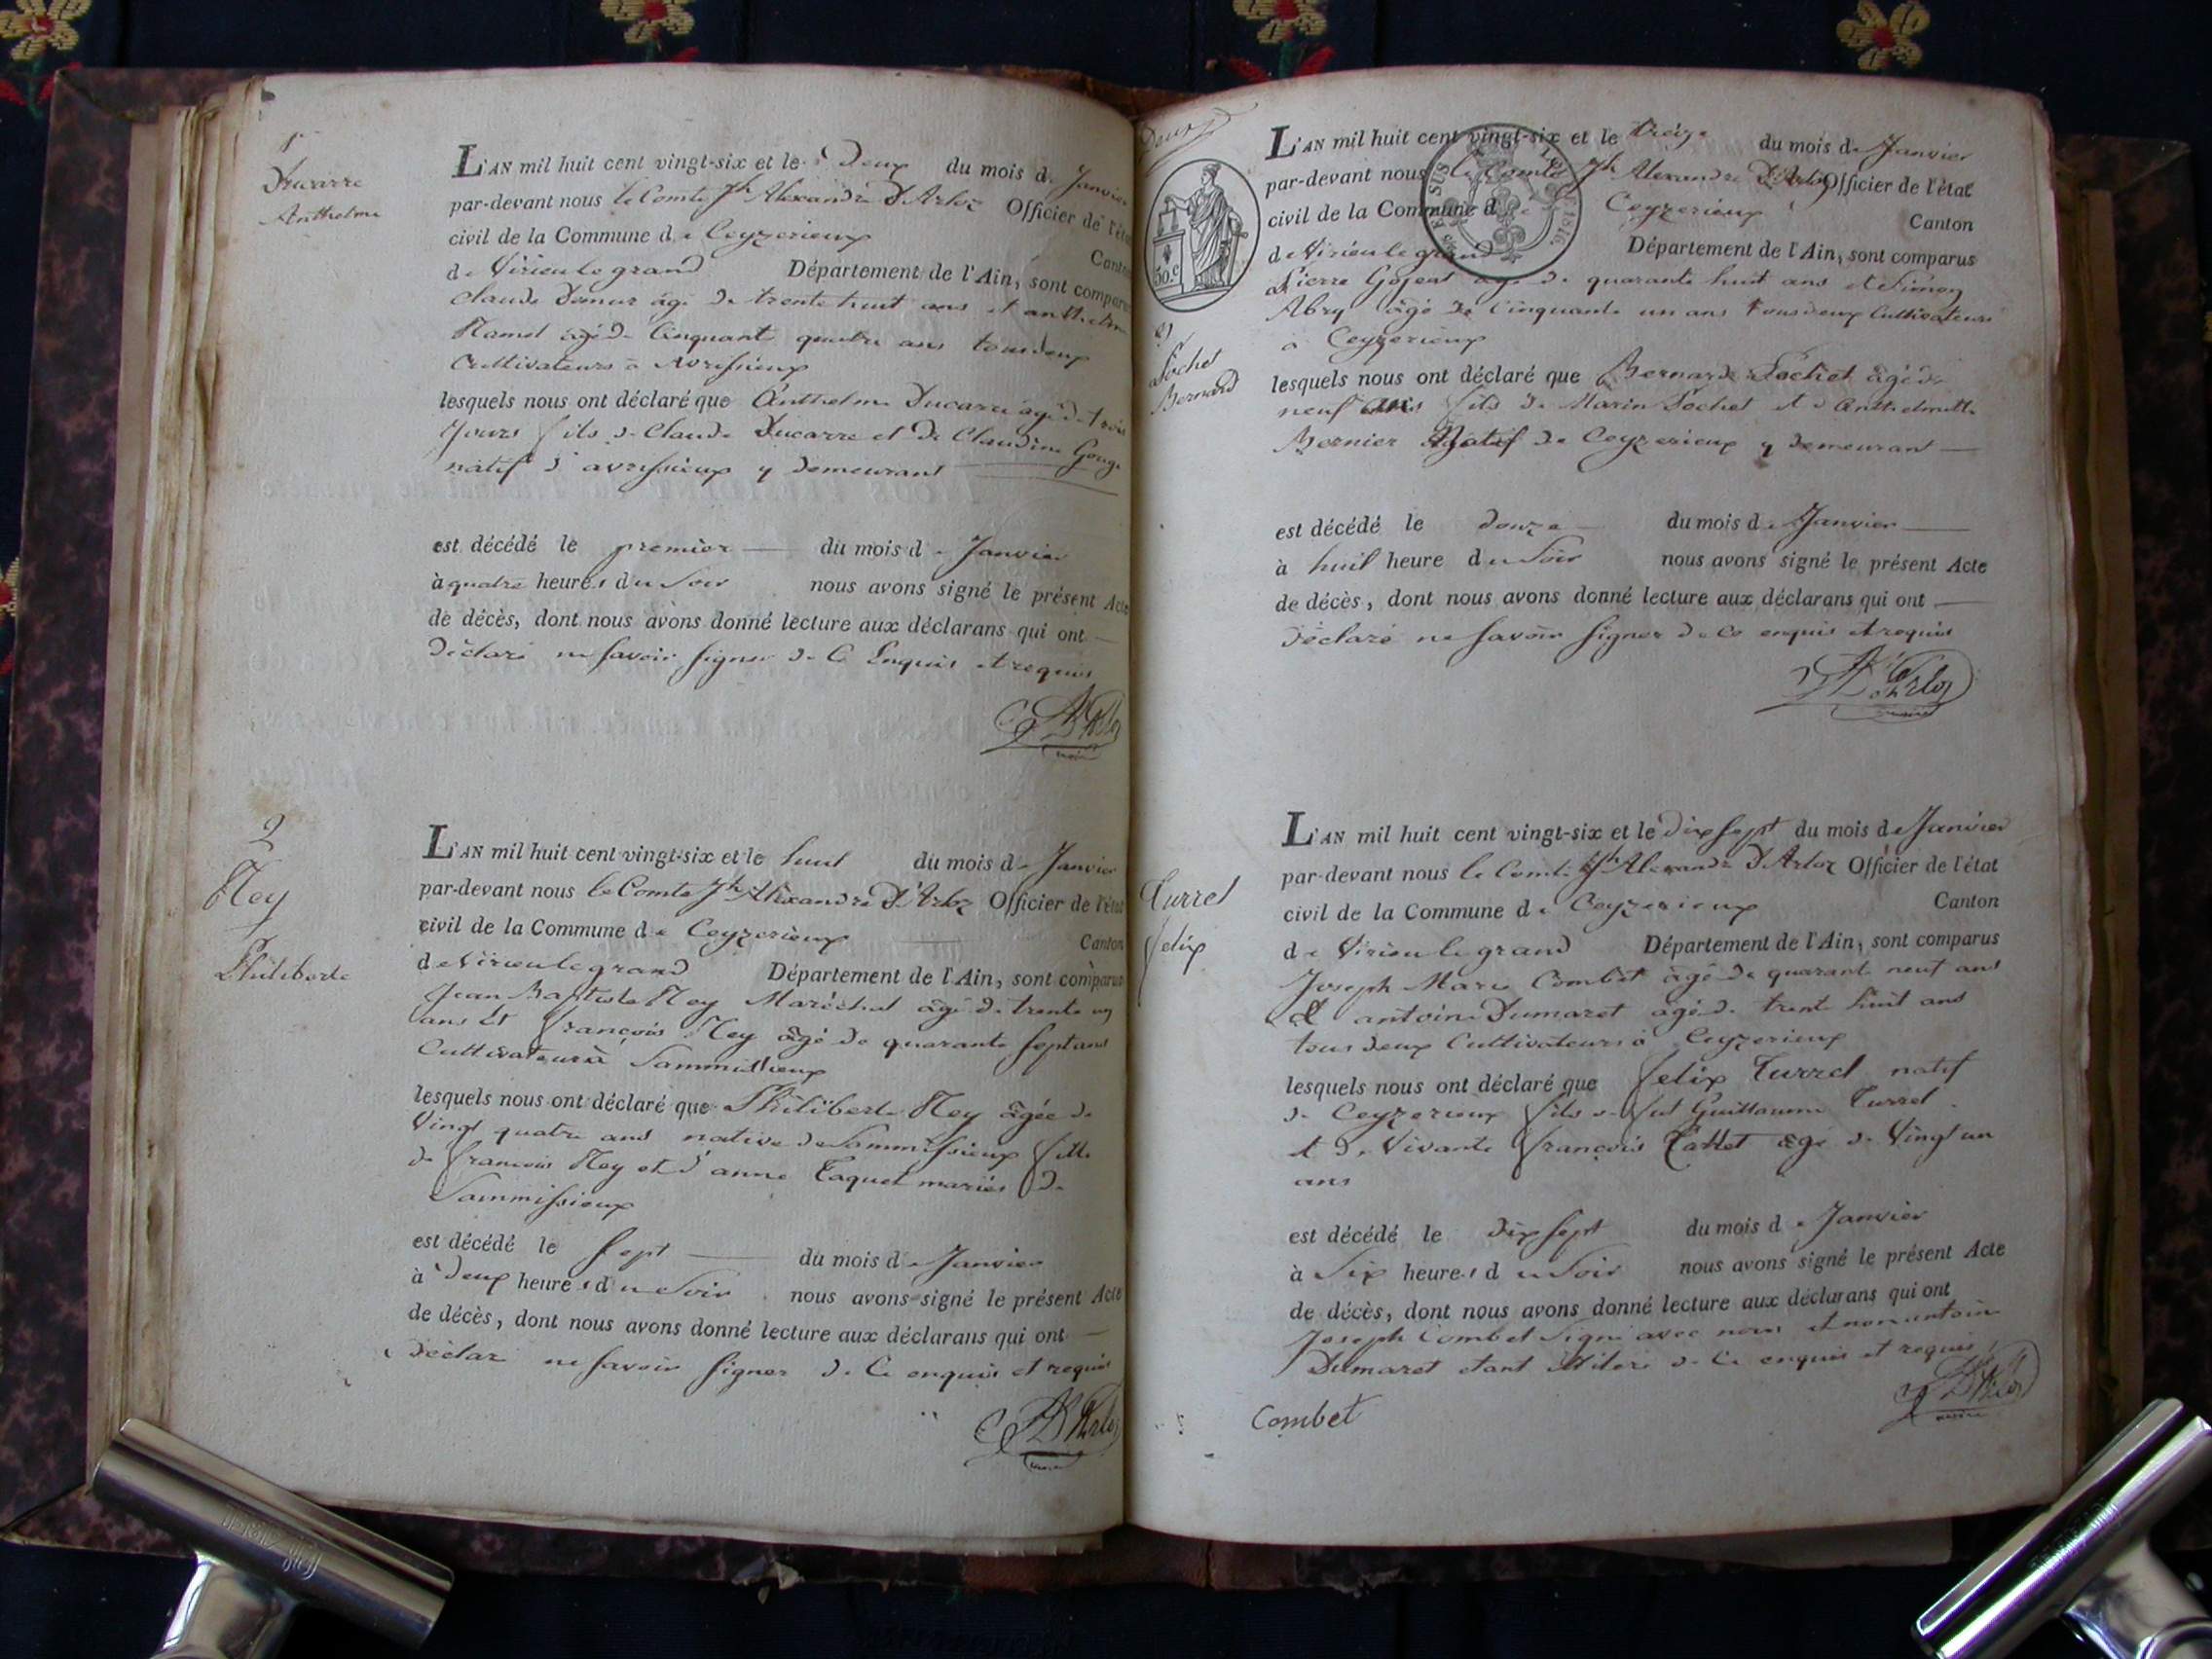 1
Ducarre
Anthelme
L'AN mil huit cent vingt-six et le Deux du mois de Janvier
par-devant nous le Comte Jh Alexandre D'Arloz Officier de l'état
civil de la Commune de Ceyzerieux
Canton
de Virieu le grand Département de l'Ain, sont comparus
Claude Dumur âgé de trente huit ans et anthelme
Hamel âgé de Cinquante quatre ans tous deux
Cultivateurs à Avrissieux
lesquels nous ont déclaré que Anthelme Ducarre âgé de trois
Jours fils de Claude Ducarre et de Claudine Gouge
natif d'avrissieux y demeurant
est décédé le premier du mois de Janvier
à quatre heures du Soir nous avons signé le présent Acte
de décès, dont nous avons donné lecture aux déclarans qui ont
Déclaré ne savoir signer de Ce Enquis et requis
2
Ney
Philiberte
L'AN mil huit cent vingt-six et le huit du mois de Janvier
par-devant nous le Comte Jh Alexandre D'Arloz Officier de l'état
civil de la Commune de Ceyzerieux
Canton
de Virieu le grand Département de l'Ain, sont comparus
Jean Baptiste Ney Maréchal âgé de trente un
ans Et françois Ney âgé de quarante sept ans
Cultivateur à Sammissieux
lesquels nous ont déclaré que Philiberte Ney âgée de
Vingt quatre ans native de Sammissieux fille
de francois Ney et d'anne Taquet mariés de
Sammissieux
est décédé le sept du mois de Janvier
à deux heures du Soir nous avons signé le présent Acte
de décès, dont nous avons donné lecture aux déclarans qui ont
Déclaré ne savoir signer de Ce enquis et requis
Deux
50.c
1816.
3
Pochet
Bernard
L'AN mil huit cent vingt-six et le treize du mois de Janvier
par-devant nous le Comte Jh Alexandre D'Arloz Officier de l'état
civil de la Commune de Ceyzerieux
Canton
de Virieu le grand Département de l'Ain, sont comparus
Pierre Gojeat âgé de quarante huit ans et Simon
Abry âgé de Cinquante un ans tous deux Cultivateurs
à Ceyzerieux
lesquels nous ont déclaré que Bernard Pochet âgé de
neuf fils de Marin Pochet et d'Anthelmette
Bernier Natif de Ceyzerieux y demeurant
est décédé le douze du mois de Janvier
à huit heure du Soir nous avons signé le présent Acte
de décès, dont nous avons donné lecture aux déclarans qui ont
Déclaré ne savoir signer de Ce enquis et requis
D'Arloz
Turrel
felix
L'AN mil huit cent vingt-six et le Dix sept du mois de Janvier
par-devant nous le Comte Jh Alexandre D'Arloz Officier de l'état
civil de la Commune de Ceyzerieux Canton
de Virieu le grand Département de l'Ain, sont comparus
Joseph Marie Combet âgé de quarante neuf ans
Et antoine Dumaret âgé de trente huit ans
tous deux Cultivateurs à Ceyzerieux
lesquels nous ont déclaré que felix Turrel natif
de Ceyzerieux fils de fut Guillaume Turrel
et de Vivante françoise Tattet âgé de Vingt un
ans
est décédé le Dix sept du mois de Janvier
à Six heures du Soir nous avons signé le présent Acte
de décès, dont nous avons donné lecture aux déclarans qui ont
Joseph Combet Signé avec nous et non antoine
Dumaret etant illiteré de Ce enquis et requis
Combet